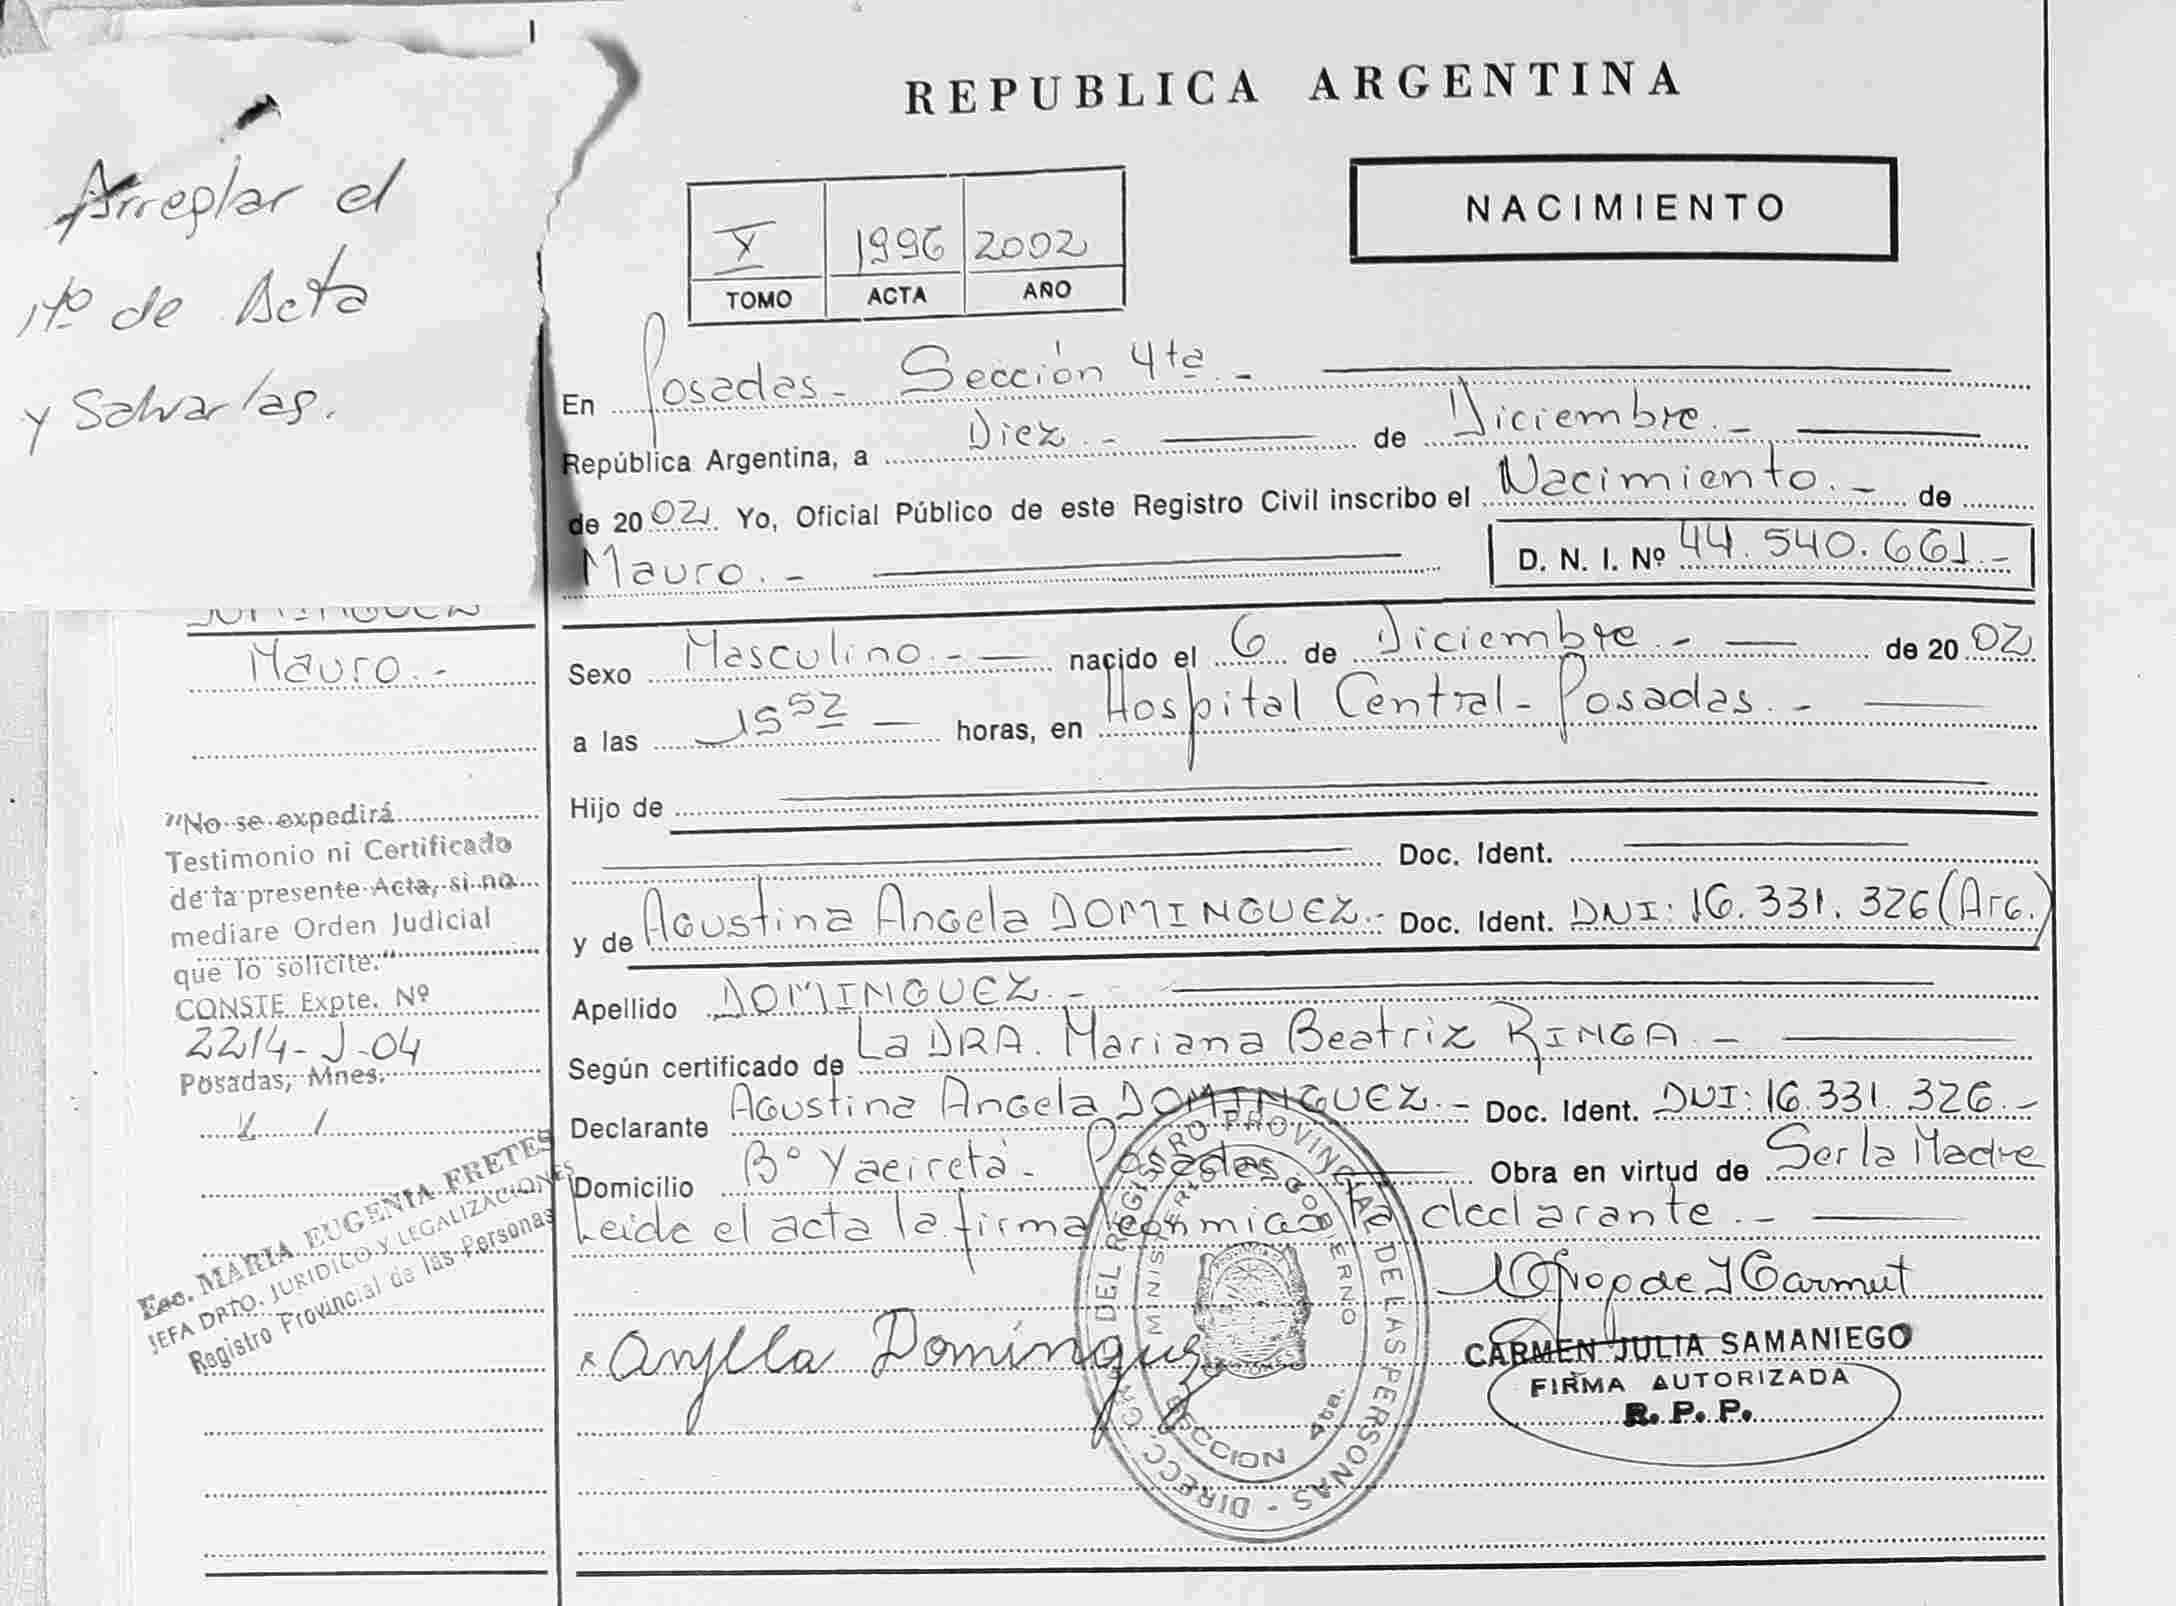 Arreglar el
Nº de Acta
y Salvarlas.
REPUBLICA ARGENTINA
NACIMIENTO
X 1996 2002
TOMO ACTA AÑO
En Posadas - Sección 4ta. -
República Argentina, a Diez. - de Diciembre. -
de 20 02. Yo, Oficial Público de este Registro Civil inscribo el Nacimiento. - de
Mauro. - D. N. I. Nº 44.540.661. -
DOMINGUEZ
Mauro. -
Sexo Masculino. - nacido el 6 de Diciembre. - de 20 02
a las 15 52 horas, en Hospital Central - Posadas. -
Hijo de
Doc. Ident.
y de Agustina Angela DOMINGUEZ. - Doc. Ident. DNI: 16.331.326 (Arg.)
Apellido DOMINGUEZ. -
Según certificado de La DRA. Mariana Beatriz RINGA. -
Declarante Agustina Angela DOMINGUEZ. - Doc. Ident. DNI: 16.331.326. -
Domicilio Bº Yacireta - Posadas Obra en virtud de Ser la Madre
Leida el acta la firma conmigo la declarante. -
"No se expedirá
Testimonio ni Certificado
de la presente Acta, si no
mediare Orden Judicial
que lo solicite."
CONSTE Expte. Nº
2214-J-04
Posadas, Mnes.
Esc. MARIA EUGENIA FRETES
JEFA DPTO. JURIDICO Y LEGALIZACIONES
Registro Provincial de las Personas
Domínguez
CARMEN JULIA SAMANIEGO
FIRMA AUTORIZADA
R. P. P.
DIRECC. GRAL. DEL REGISTRO PROVINCIAL DE LAS PERSONAS -
MINISTERIO DE GOBIERNO
SECCION 4ta.